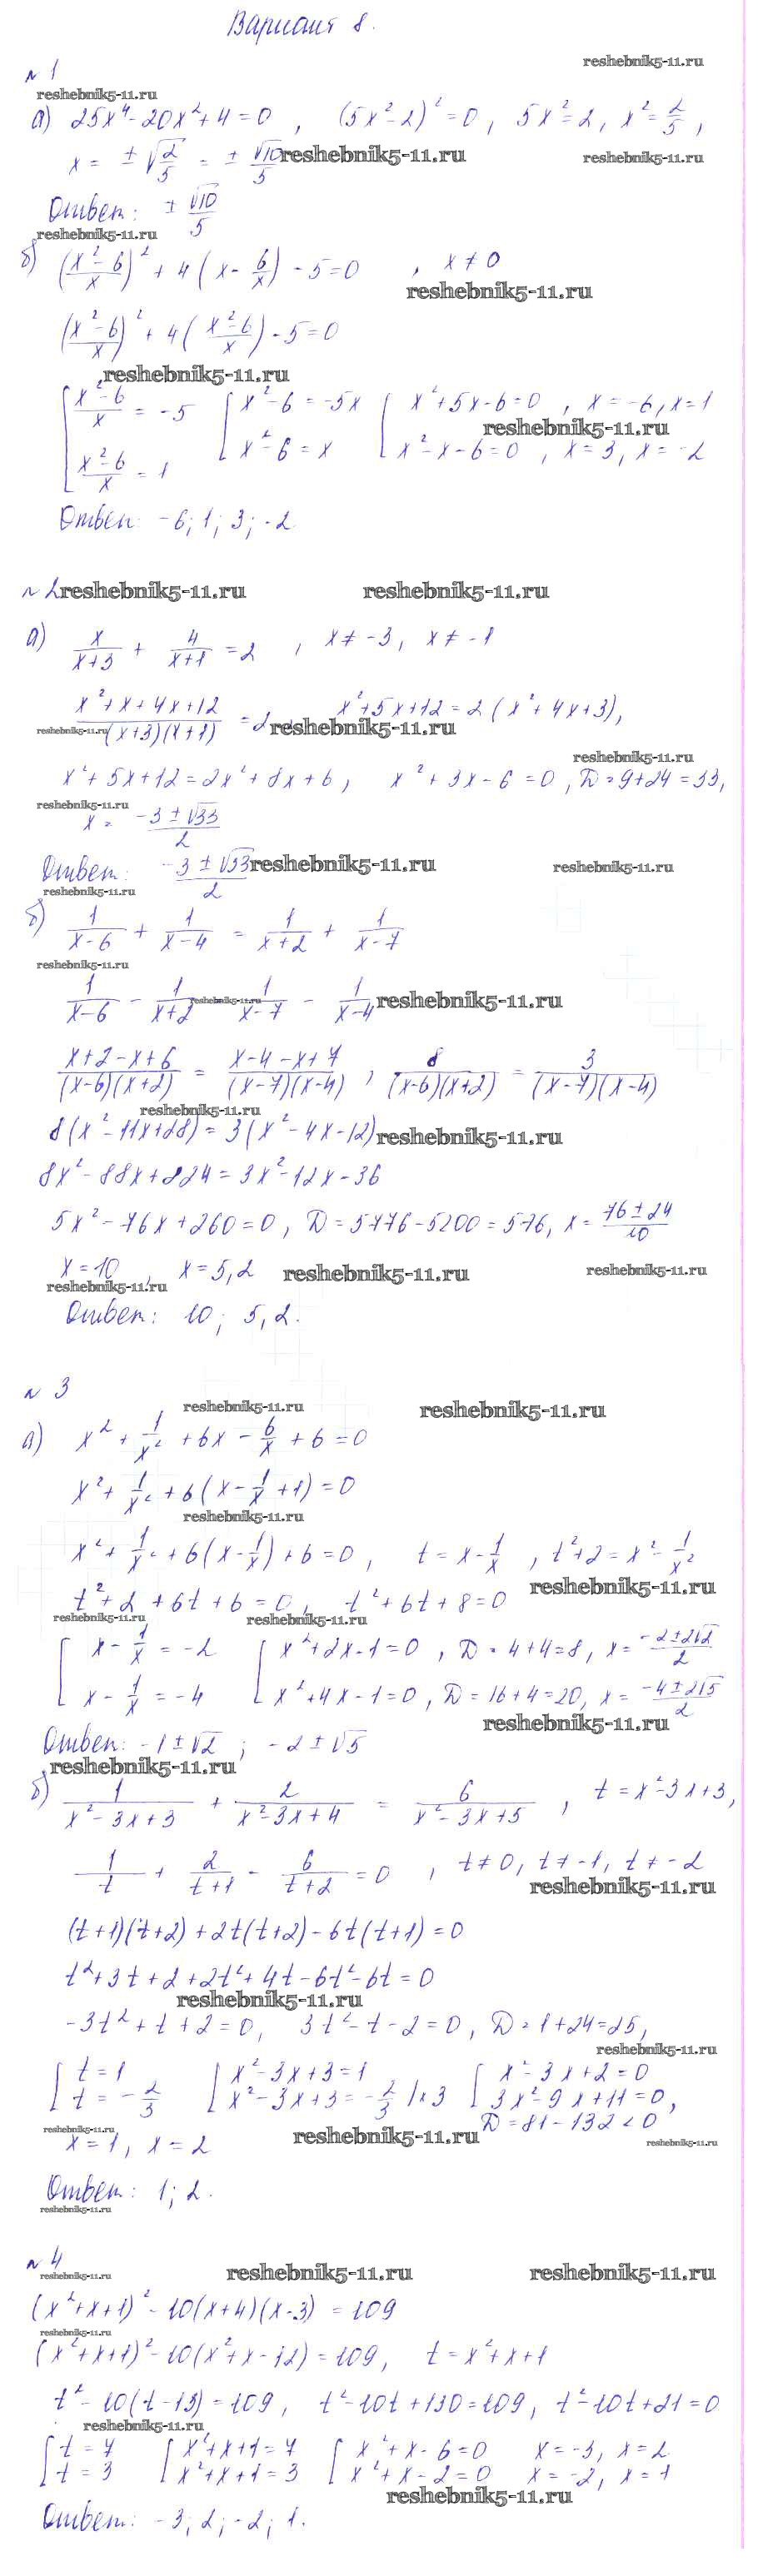 Вариант 8.
reshebnik5-11.ru
№ 1
reshebnik5-11.ru
а) 25x⁴ - 20x² + 4 = 0 , (5x² - 2)² = 0, 5x² = 2, x² = 2/5,
x = ± √(2/5) = ± √10/5 reshebnik5-11.ru reshebnik5-11.ru
Ответ: ± √10/5
reshebnik5-11.ru
б) ((x² - 6)/x)² + 4(x - 6/x) - 5 = 0 , x ≠ 0
reshebnik5-11.ru
((x² - 6)/x)² + 4((x² - 6)/x) - 5 = 0
reshebnik5-11.ru
[ (x² - 6)/x = -5 [ x² - 6 = -5x [ x² + 5x - 6 = 0 , x = -6, x = 1
reshebnik5-11.ru
(x² - 6)/x = 1 x² - 6 = x x² - x - 6 = 0 , x = 3, x = -2
Ответ: -6; 1; 3; -2.
№ 2 reshebnik5-11.ru reshebnik5-11.ru
а) x/(x+3) + 4/(x+1) = 2 , x ≠ -3, x ≠ -1
(x² + x + 4x + 12)/((x+3)(x+1)) = 2, x² + 5x + 12 = 2(x² + 4x + 3),
reshebnik5-11.ru reshebnik5-11.ru
reshebnik5-11.ru
x² + 5x + 12 = 2x² + 8x + 6, x² + 3x - 6 = 0, D = 9 + 24 = 33,
reshebnik5-11.ru
x = (-3 ± √33)/2
Ответ: (-3 ± √33)/2 reshebnik5-11.ru reshebnik5-11.ru
reshebnik5-11.ru
б) 1/(x-6) + 1/(x-4) = 1/(x+2) + 1/(x-7)
reshebnik5-11.ru
1/(x-6) - 1/(x+2) reshebnik5-11.ru 1/(x-7) - 1/(x-4) reshebnik5-11.ru
(x+2-x+6)/((x-6)(x+2)) = (x-4-x+7)/((x-7)(x-4)) , 8/((x-6)(x+2)) = 3/((x-7)(x-4))
reshebnik5-11.ru
8(x² - 11x + 28) = 3(x² - 4x - 12) reshebnik5-11.ru
8x² - 88x + 224 = 3x² - 12x - 36
5x² - 76x + 260 = 0, D = 5776 - 5200 = 576, x = (76 ± 24)/10
x = 10 , x = 5,2 reshebnik5-11.ru reshebnik5-11.ru
reshebnik5-11.ru
Ответ: 10; 5,2.
№ 3
reshebnik5-11.ru reshebnik5-11.ru
а) x² + 1/x² + 6x - 6/x + 6 = 0
x² + 1/x² + 6(x - 1/x + 1) = 0
reshebnik5-11.ru
x² + 1/x² + 6(x - 1/x) + 6 = 0, t = x - 1/x , t² + 2 = x² - 1/x²
reshebnik5-11.ru
t² + 2 + 6t + 6 = 0, t² + 6t + 8 = 0
reshebnik5-11.ru reshebnik5-11.ru
[ x - 1/x = -2 [ x² + 2x - 1 = 0 , D = 4 + 4 = 8, x = (-2 ± 2√2)/2
x - 1/x = -4 x² + 4x - 1 = 0, D = 16 + 4 = 20, x = (-4 ± 2√5)/2
reshebnik5-11.ru
Ответ: -1 ± √2 ; -2 ± √5
reshebnik5-11.ru
б) 1/(x² - 3x + 3) + 2/(x² - 3x + 4) = 6/(x² - 3x + 5) , t = x² - 3x + 3,
1/t + 2/(t+1) - 6/(t+2) = 0 , t ≠ 0, t ≠ -1, t ≠ -2
reshebnik5-11.ru
(t+1)(t+2) + 2t(t+2) - 6t(t+1) = 0
t² + 3t + 2 + 2t² + 4t - 6t² - 6t = 0
reshebnik5-11.ru
-3t² + t + 2 = 0, 3t² - t - 2 = 0, D = 1 + 24 = 25,
reshebnik5-11.ru
[ t = 1 [ x² - 3x + 3 = 1 [ x² - 3x + 2 = 0
t = -2/3 x² - 3x + 3 = -2/3 |×3 3x² - 9x + 11 = 0,
D = 81 - 132 < 0
reshebnik5-11.ru reshebnik5-11.ru reshebnik5-11.ru
x = 1, x = 2
Ответ: 1; 2.
reshebnik5-11.ru
№ 4
reshebnik5-11.ru reshebnik5-11.ru reshebnik5-11.ru
(x² + x + 1)² - 10(x+4)(x-3) = 109
reshebnik5-11.ru
(x² + x + 1)² - 10(x² + x - 12) = 109, t = x² + x + 1
t² - 10(t - 13) = 109, t² - 10t + 130 = 109, t² - 10t + 21 = 0
reshebnik5-11.ru
[ t = 7 [ x² + x + 1 = 7 [ x² + x - 6 = 0 x = -3, x = 2
t = 3 x² + x + 1 = 3 x² + x - 2 = 0 x = -2, x = 1
reshebnik5-11.ru
Ответ: -3; 2; -2; 1.